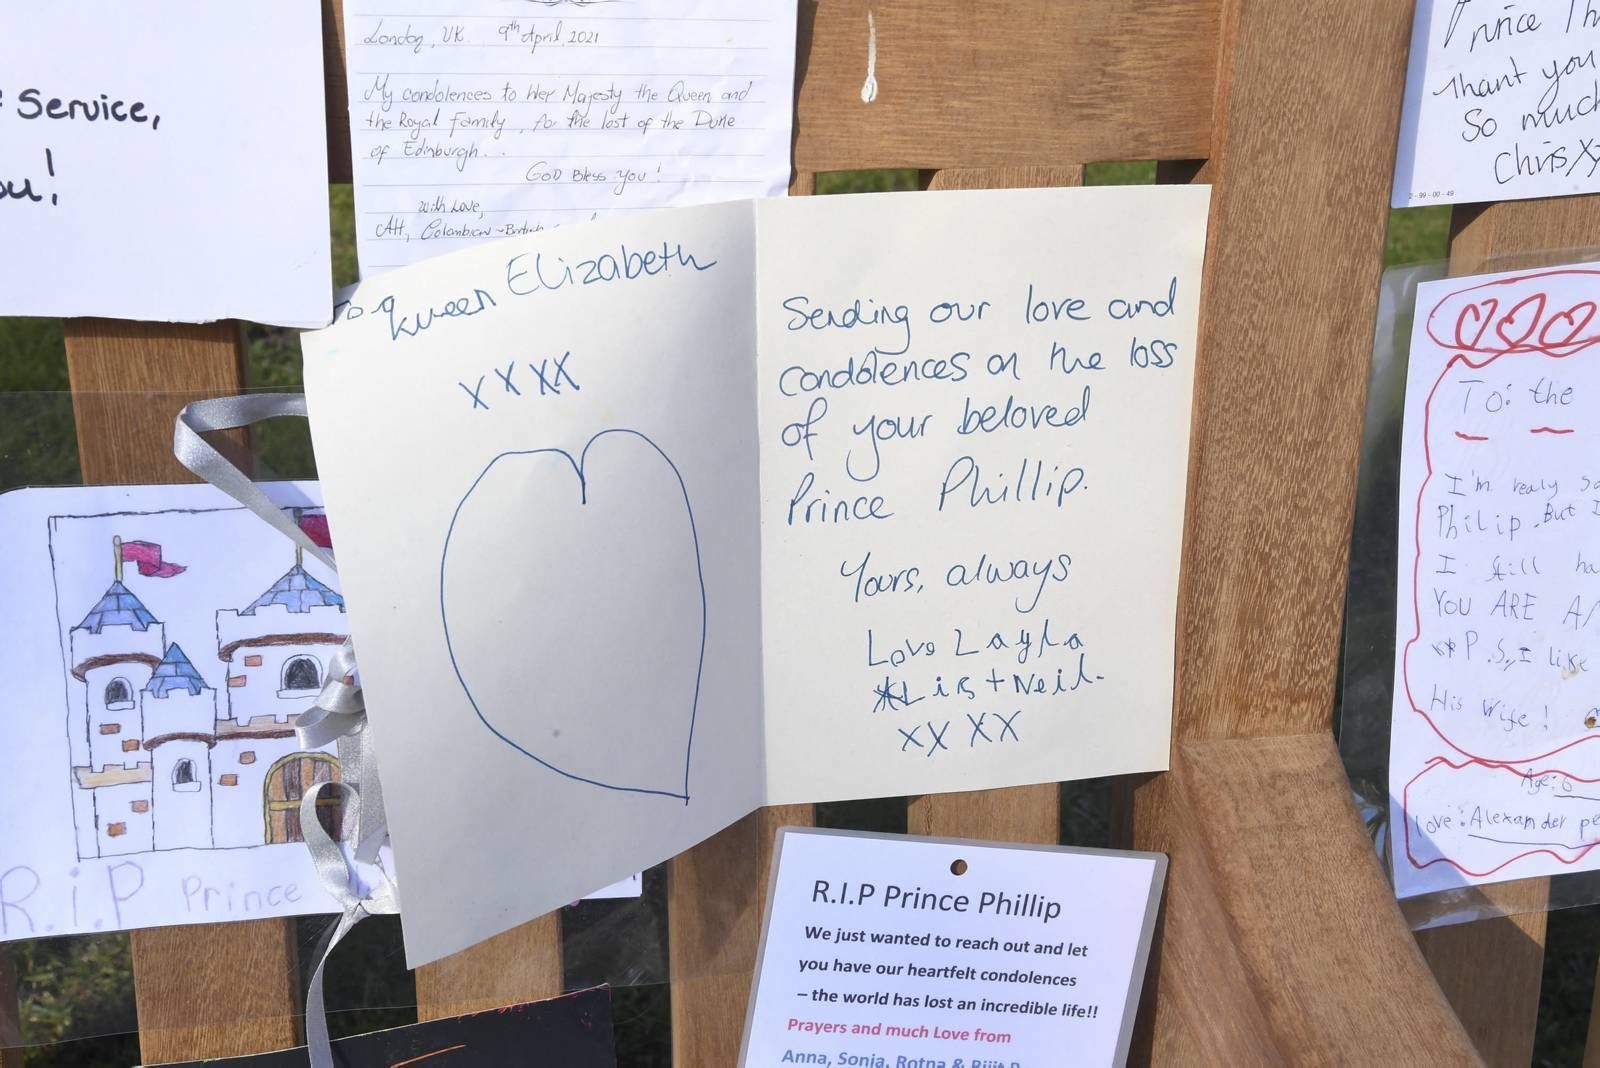 Service,
ou!
London, UK. 9th April, 2021
My condolences to Her Majesty the Queen and
the Royal Family, for the lost of the Duke
of Edinburgh..
God Bless you!
With Love,
AH, Colombian-
To Queen Elizabeth
xxxx
Sending our love and
condolences on the loss
of your beloved
Prince Phillip.
Yours, always
Love Layla
Lis + Neil.
xx xx
R.i.P Prince
R.I.P Prince Phillip
We just wanted to reach out and let
you have our heartfelt condolences
– the world has lost an incredible life!!
Prayers and much Love from
Anna, Sonia, Rotna &
Thank you
So much
Chris xx
- 99 - 00 - 49
To: the
I'm realy
Philip. But I
I still ha
YOU ARE
P.S. I like
His Wife!
Age: 6
love: Alexander